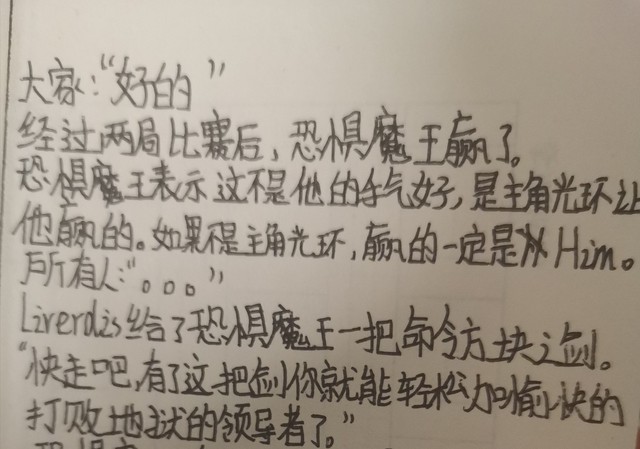 大家:“好的”
经过两局比赛后,恐惧魔王赢了。
恐惧魔王表示这不是他的手气好,是主角光环让
他赢的。如果不是主角光环,赢的一定是Him。
所有人:“。。。”
Liverdis给了恐惧魔王一把命令方块之剑。
“快走吧,有了这把剑你就能轻松加愉快的
打败地狱的领导者了。”